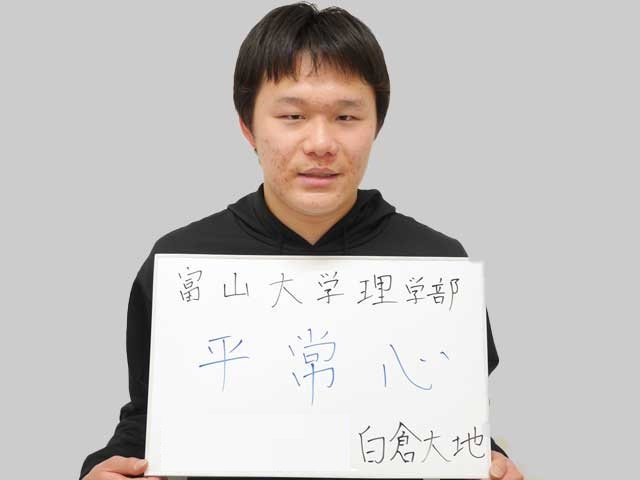 富山大学理学部
平常心
白倉大地